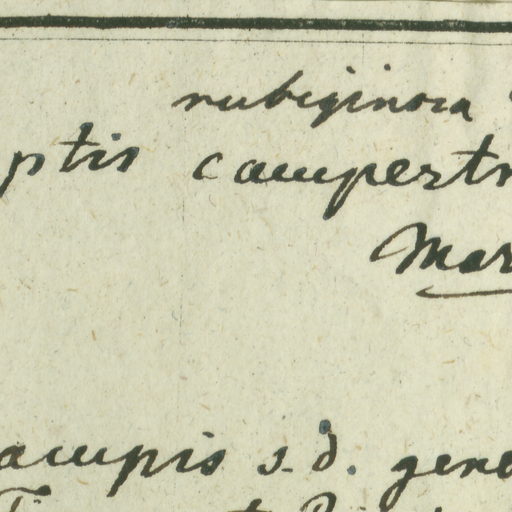 rubiginosa
ptis campestr
Mar
ampis s. d. gene